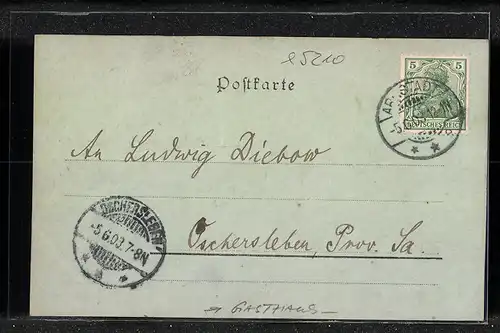 e5210
Postkarte
5 5
DEUTSCHES REICH
ARNSTADT
An Ludwig Diebow
OSCHERSLEBEN
-5.6.03. 7-8N
Oschersleben, Prov. Sa.
→ GASTHAUS -